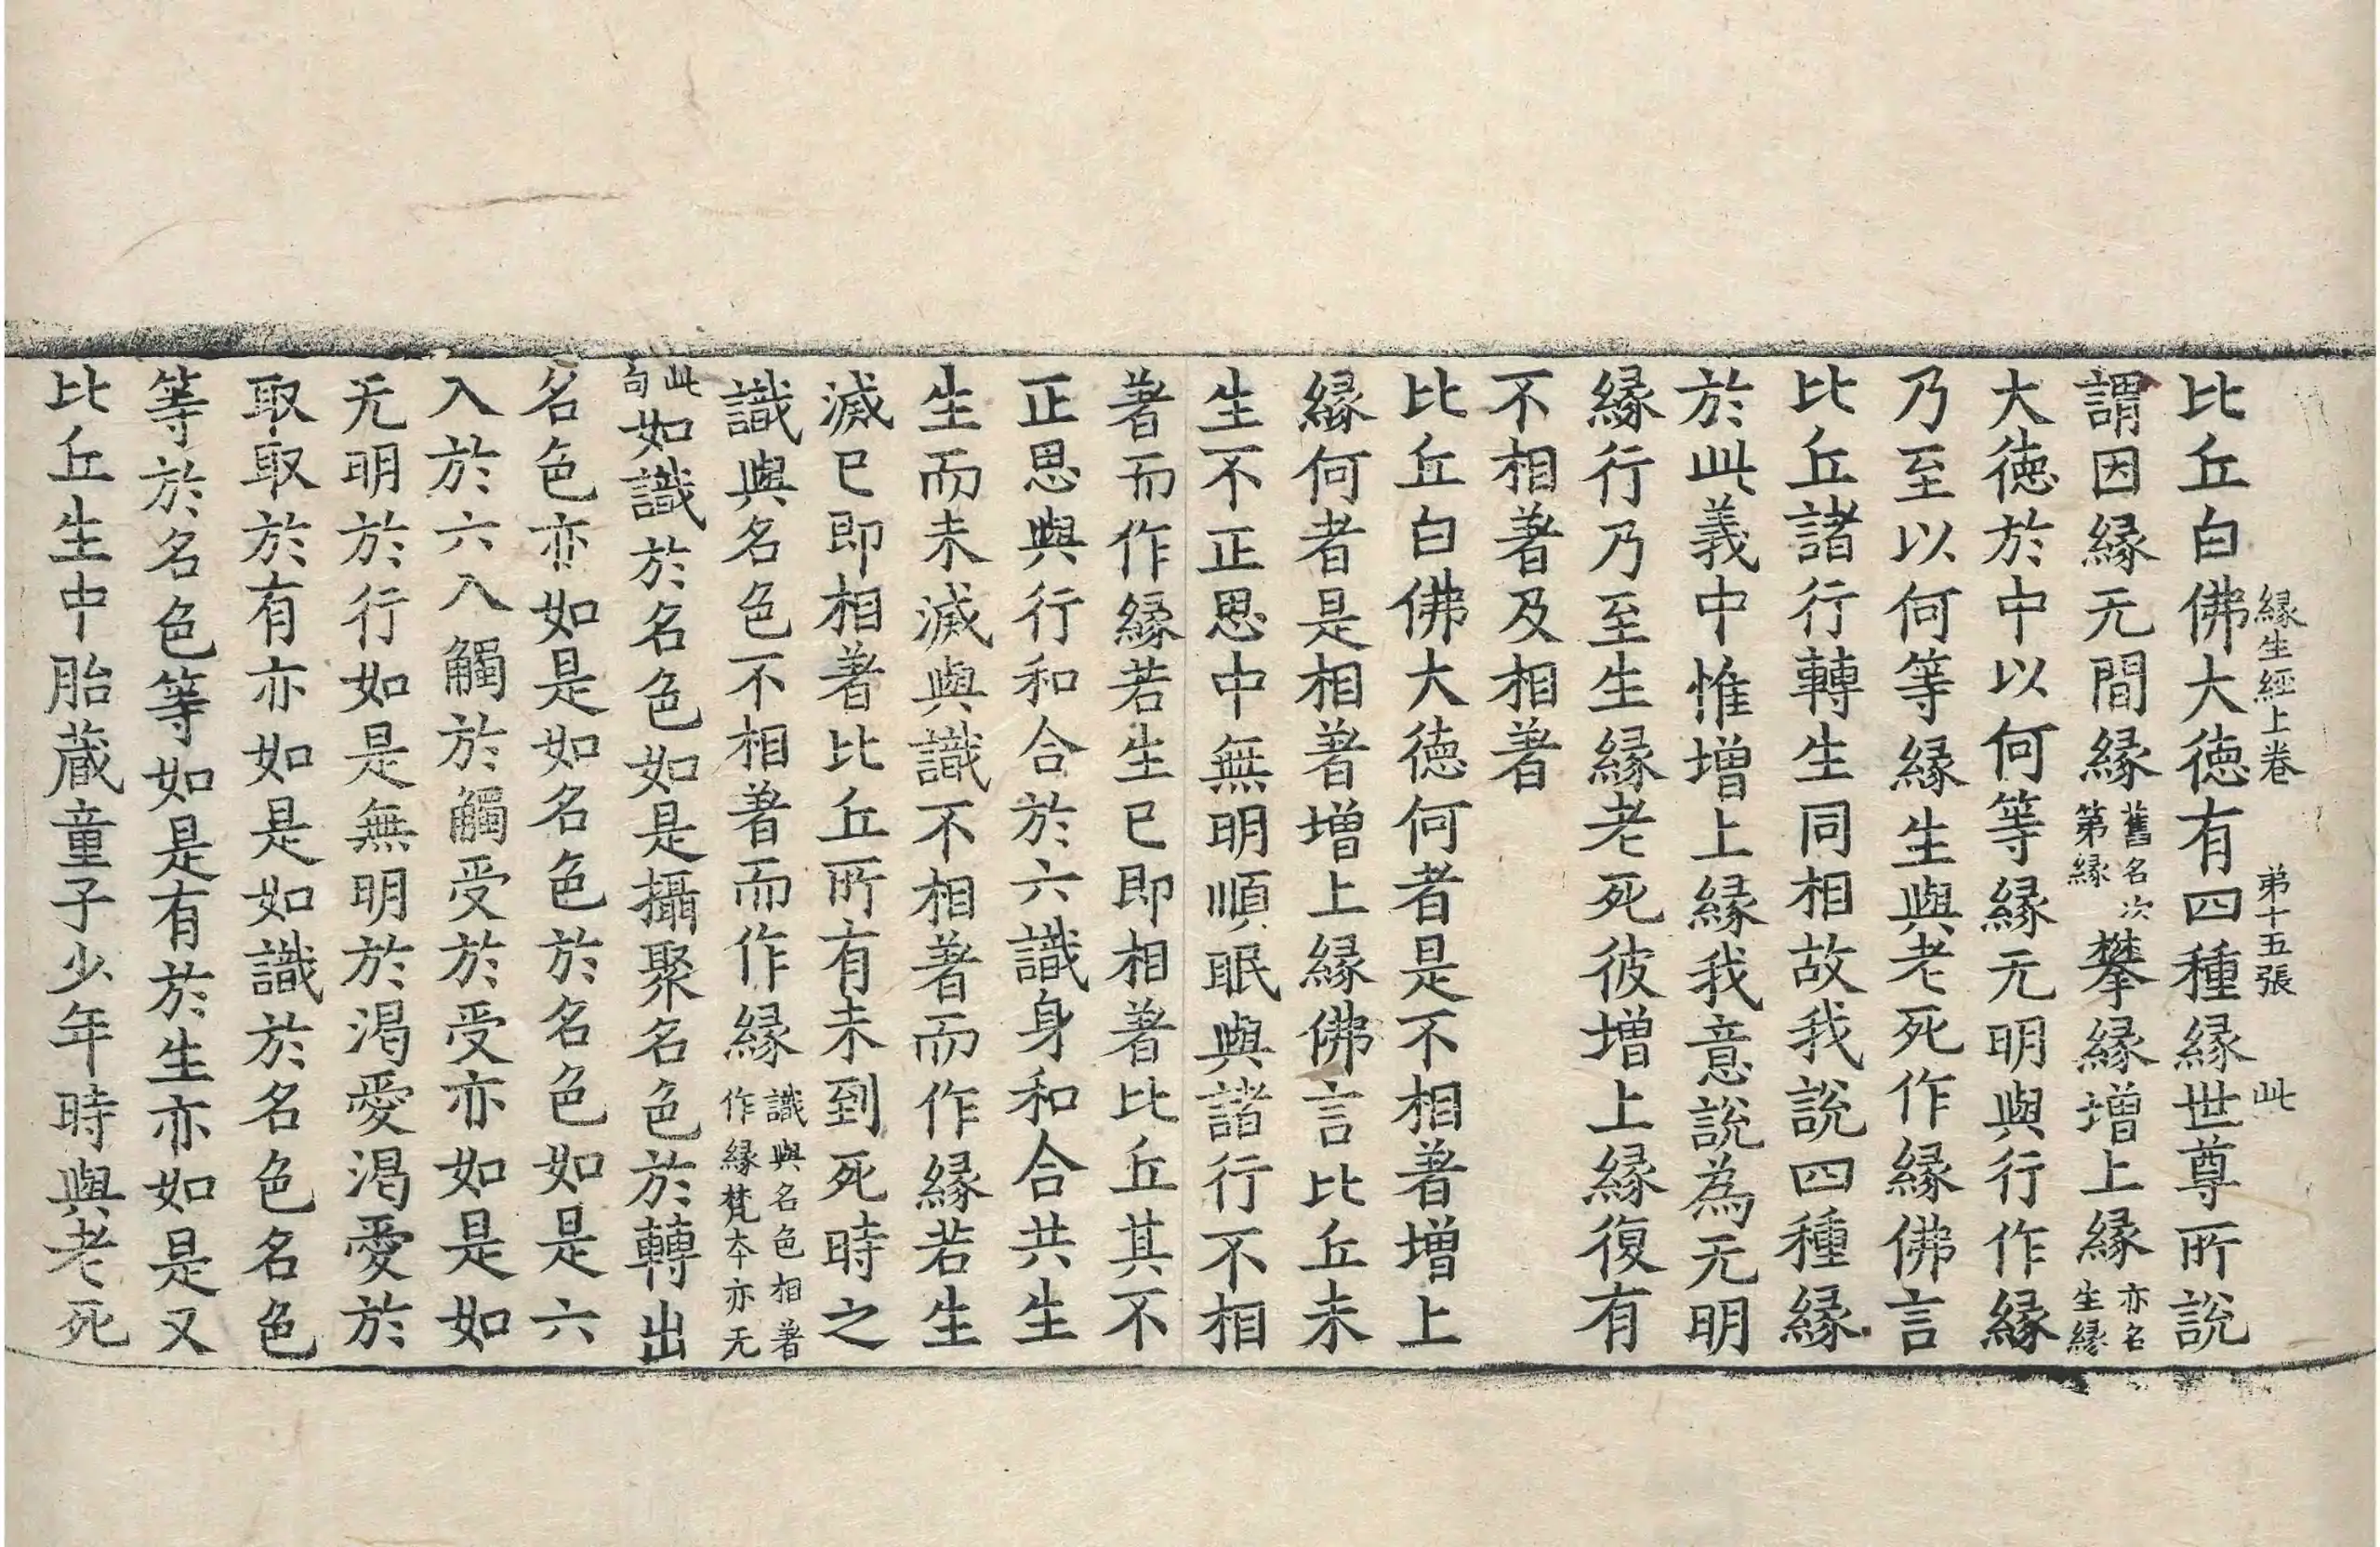 緣生經上卷 弟十五張 此
比丘白佛大德有四種緣世尊所說
謂因緣无間緣舊名次第緣攀緣增上緣亦名生緣
大德於中以何等緣无明與行作緣
乃至以何等緣生與老死作緣佛言
比丘諸行轉生同相故我說四種緣
於此義中惟增上緣我意說為无明
緣行乃至生緣老死彼增上緣復有
不相著及相著
比丘白佛大德何者是不相著增上
緣何者是相著增上緣佛言比丘未
生不正思中無明順眠與諸行不相
著而作緣若生已即相著比丘其不
正思與行和合於六識身和合共生
生而未滅與識不相著而作緣若生
滅已即相著比丘所有未到死時之
識與名色不相著而作緣識與名色相著作緣梵本亦无
此句如識於名色如是攝聚名色於轉出
名色亦如是如名色於名色如是六
入於六入觸於觸受於受亦如是如
无明於行如是無明於渴愛渴愛於
取取於有亦如是如識於名色名色
等於名色等如是有於生亦如是又
比丘生中胎藏童子少年時與老死